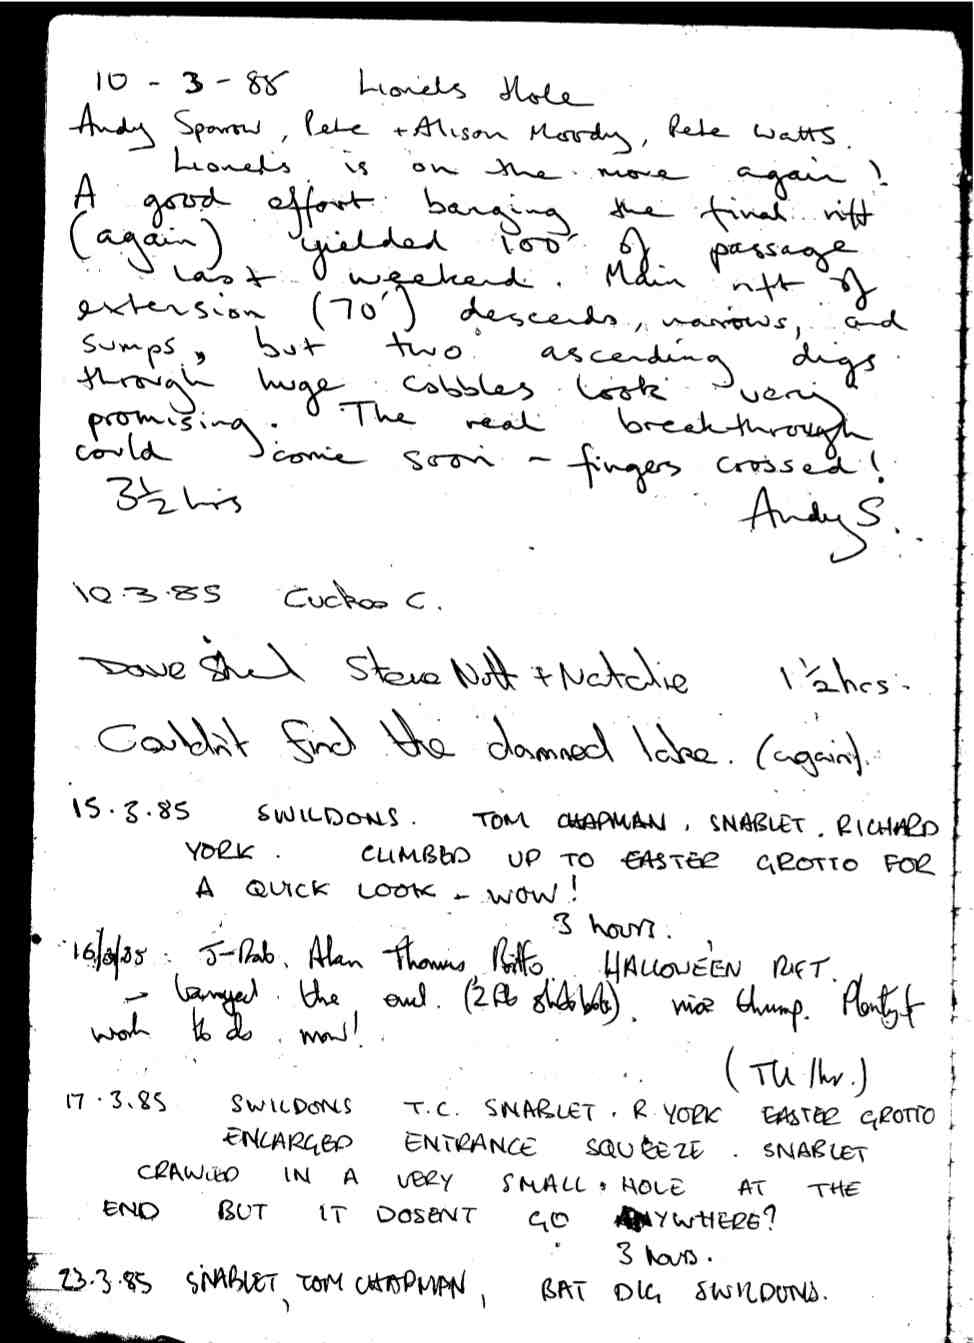 10 - 3 - 85 Lionels Hole
Andy Sparrow, Pete + Alison Moody, Pete Watts.
Lionels is on the move again!
A good effort banging the final rift
(again) yielded 100' of passage
last weekend. Main rift of
extension (70') descends, narrows, and
sumps, but two ascending digs
through huge cobbles look very
promising. The real breakthrough
could come soon - fingers crossed!
3½ hrs Andy S.
10.3.85 Cuckoo C.
Dave Steve Nutt + Natalie 1½hrs.
Couldn't find the damned lake. (again).
15.3.85 SWILDONS. TOM CHAPMAN, SNABLET, RICHARD
YORK. CLIMBED UP TO EASTER GROTTO FOR
A QUICK LOOK - WOW!
3 hours.
16/3/85 : J-Rab, Alan Thomas, HALLOWEEN RIFT.
- banged the end. (2 lb). nice thump. Plenty of
work to do now!
(TU 1hr.)
17.3.85 SWILDONS T.C. SNABLET. R. YORK EASTER GROTTO
ENLARGED ENTRANCE SQUEEZE. SNABLET
CRAWLED IN A VERY SMALL HOLE AT THE
END BUT IT DOSENT GO ANYWHERE?
3 hours.
23.3.85 SNABLET, TOM CHAPMAN, BAT DIG SWILDONS.